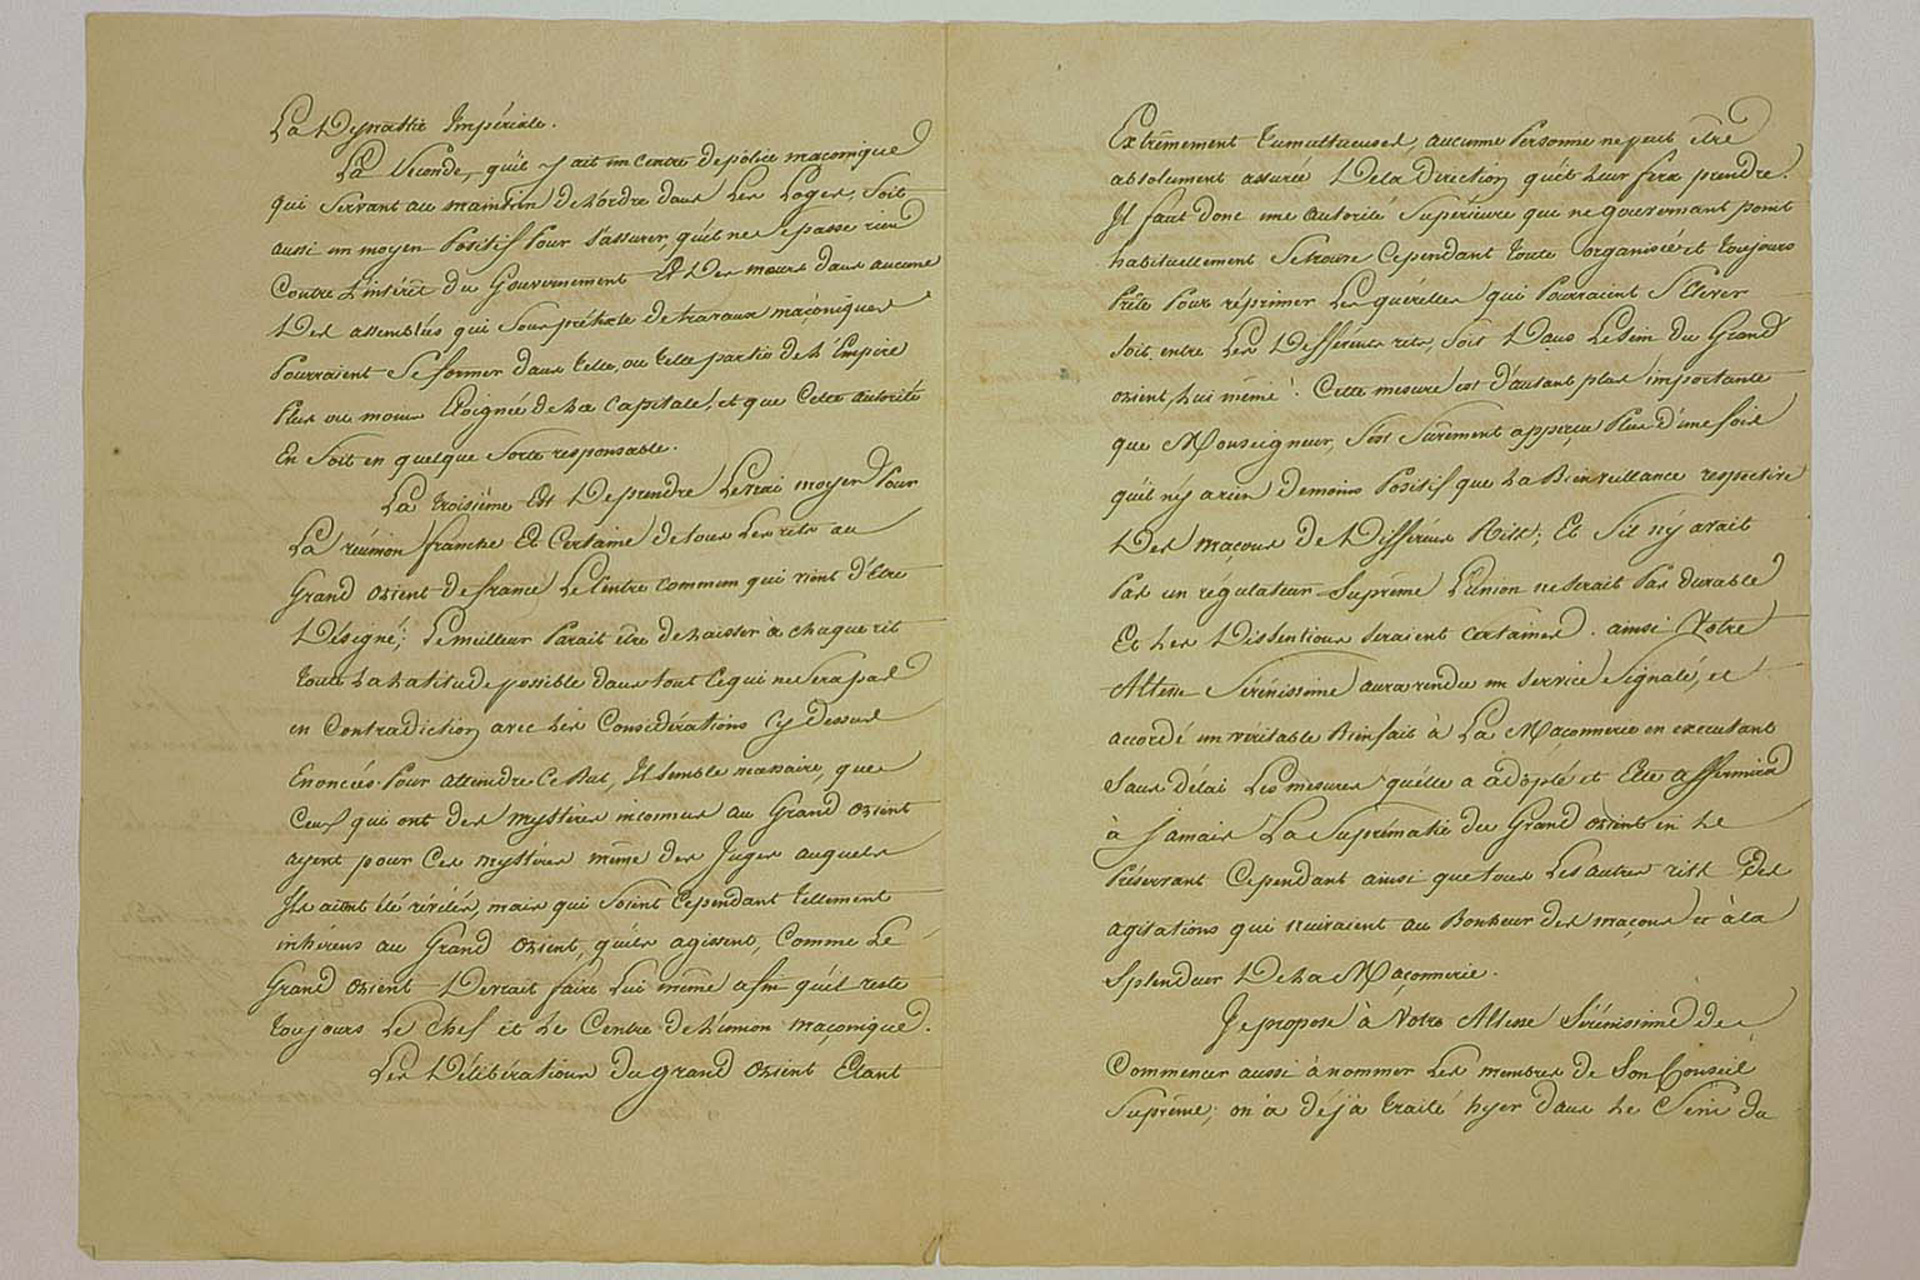 La Dynastie Impériale.
La Seconde, qu'il y ait un centre de police maçonique
qui Servant au maintien de L'ordre dans Les Loges, Soit
aussi un moyen Positif Pour S'assurer, qu'il ne Se passe rien
Contre L'intérêt du Gouvernement Et Des mœurs dans aucune
Des assemblées qui Sous prétexte de travaux maçoniques
Pourraient Se former dans telle, ou telle partie de L'Empire
Plus ou moins Eloignée de La Capitale, et que Cette autorité
En Soit en quelque Sorte responsable.
La troisième Est De prendre Le vrai moyen Pour
La réunion franche Et Certaine de tous Les rits au
Grand orient de france Le Centre commun qui vient d'Etre
Désigné; Le meilleur Parait être de Laisser à chaque rit
toute La Latitude possible dans tout Ce qui ne Sera pas
en Contradiction avec Les Considérations Cy dessus
Enoncées. Pour atteindre Ce But, Il Semble necessaire, que
Ceux qui ont des mystères inconnus au Grand orient
ayent pour Ces mystères même des Juges auquels
Ils aient été révélés, mais qui Soient Cependant tellement
inhérens au Grand orient, qu'ils agissent, Comme Le
Grand orient Devrait faire Lui même afin qu'il reste
toujours Le Chef et Le Centre de L'union maçonique.
Les Délibérations du grand orient Etant
Extrêmement tumultueuses, aucune Personne ne peut être
absolument assurée De la Direction qu'il Leur fera prendre.
Il faut donc une autorité Supérieure qui ne gouvernant point
habituellement Se trouve Cependant toute organisée et toujours
Prête Pour réprimer Les querelles qui Pourraient S'Elever
Soit entre Les Differents rits, Soit Dans Le Sein du Grand
orient, Lui même! Cette mesure est d'autant plus importante
que Monseigneur, S'est Surement apperçu Plus d'une fois
qu'il n'y a rien de moins Positif que La Bienveillance respective
Des maçons de Différens Rits; Et S'il n'y avait
Pas un régulateur Suprême L'union ne Serait Pas durable
Et Les Dissentions Seraient certaines. ainsi Votre
Altesse Sérénissime aura rendu un Service Signalé, et
accordé un véritable Bienfait à La Maçonnerie en executant
Sans délai Les mesures qu'elle a adopté et Elle affermira
à Jamais La Suprématie du Grand orient en Le
Préservant Cependant ainsi que tous Les autres rits Des
agitations qui nuiraient au Bonheur des maçons et à la
Splendeur De La Maçonnerie.
Je propose à Votre Altesse Sérénissime de
Commencer aussi à nommer Les membres de Son Conseil
Suprême; on a déjà traité hyer dans Le Sein du